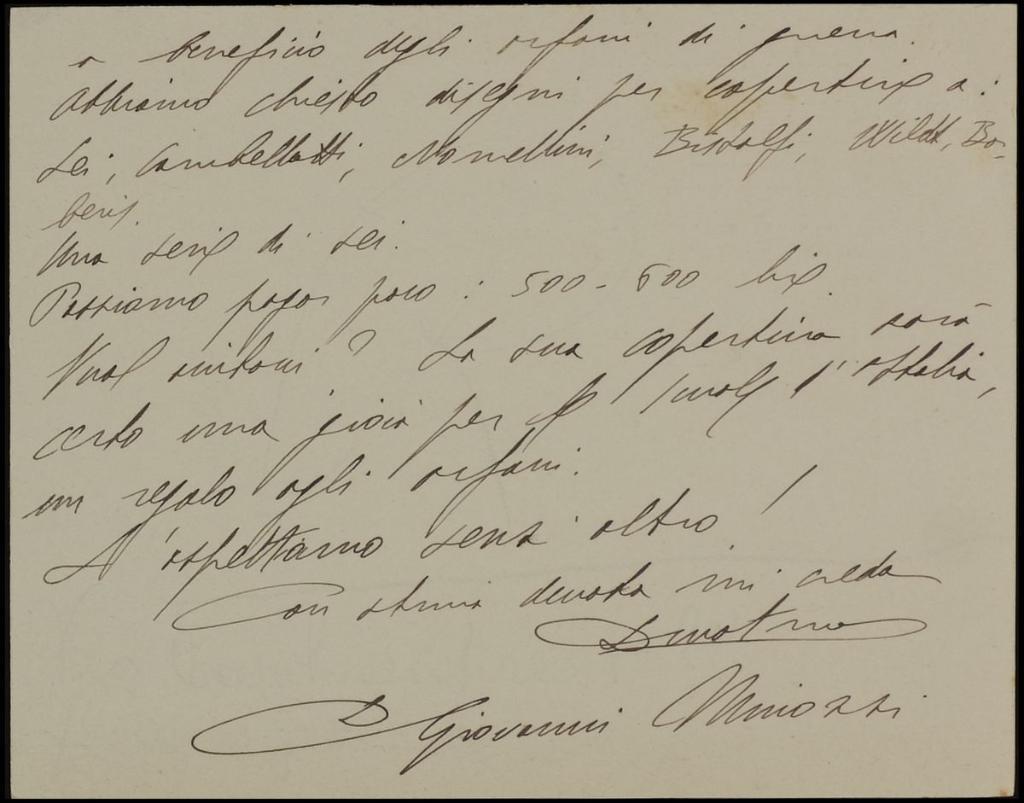 a beneficio degli orfani di guerra.
Abbiamo chiesto disegni per copertine a:
Lei, Cambellotti, Nomellini, Bistolfi, Wildt, Bo-
beris.
Una serie di sei.
Possiamo pagar poco: 500-600 lire.
Vuol aiutarci? La sua copertina sarà
certo una gioia per le scuole d'Italia,
un regalo agli orfani.
L'aspettiamo senz'altro!
Con stima devota mi creda
Devotmo
D Giovanni Minozzi